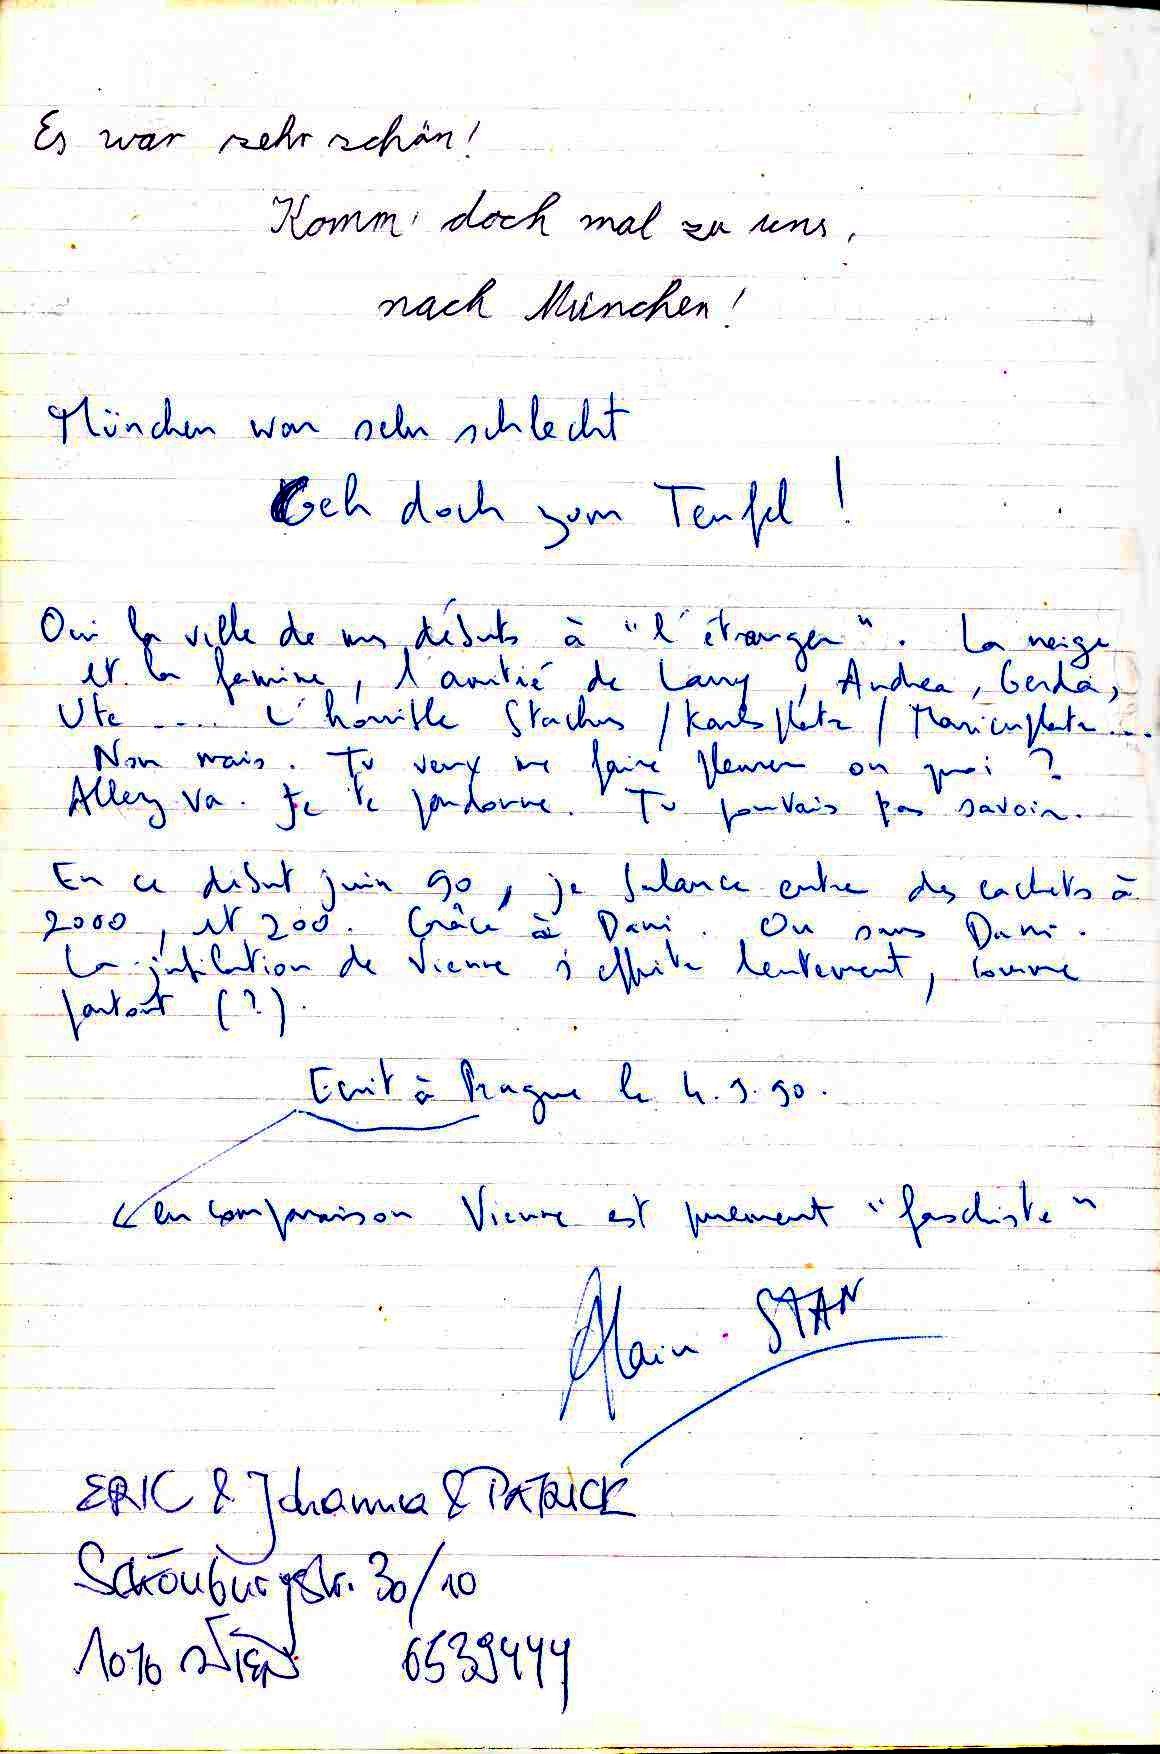 Es war sehr schön!
Komm' doch mal zu uns,
nach München!
München war sehr schlecht
Geh doch zum Teufel !
Oui la ville de mes débuts à "l'étranger". La neige
et la famine, l'amitié de Larry, Andrea, Gerda,
Ute .... L'horrible Stachus / Karlsplatz / Marienplatz ...
Non mais. Tu veux me faire pleurer ou quoi ?
Allez va. Je te pardonne. Tu pouvais pas savoir.
En ce début juin 90, je balance entre des cachets à
2000, et 200. Grâce à Dani. Ou sans Dani.
La jubilation de Vienne s'effrite lentement, comme
partout (?).
Ecrit à Prague le 4.9.90.
en comparaison Vienne est purement "faschiste"
Alain STAN
ERIC & Johanna & PATRICK
Schönburgstr. 30/10
Wien 6539444